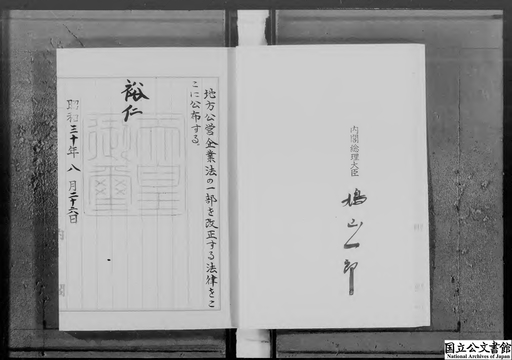 内閣総理大臣
鳩山一郎
地方公営企業法の一部を改正する法律をこ
こに公布する。
裕仁
天皇
御璽
昭和三十年八月二十六日
内閣
国立公文書館
National Archives of Japan